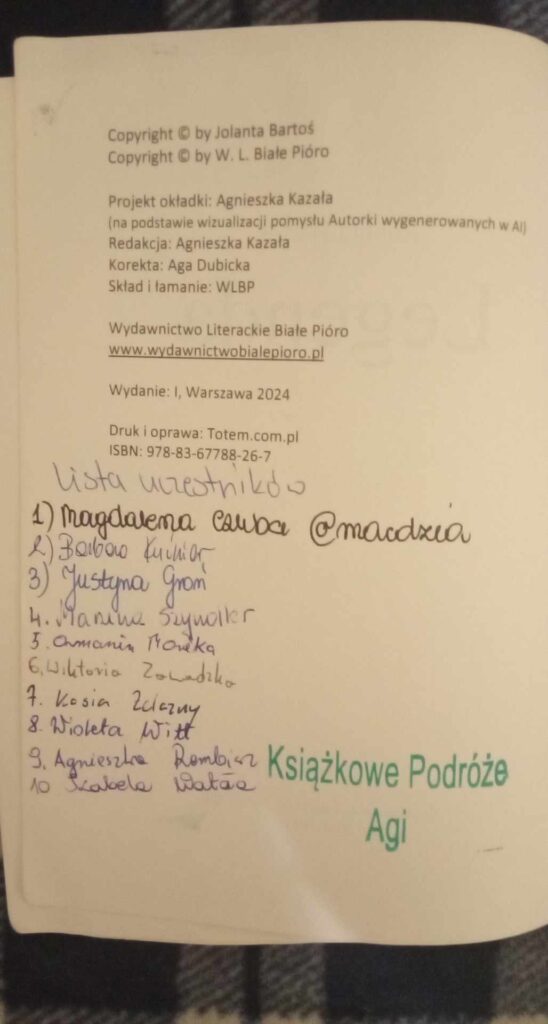 Copyright © by Jolanta Bartoś
Copyright © by W. L. Białe Pióro
Projekt okładki: Agnieszka Kazała
(na podstawie wizualizacji pomysłu Autorki wygenerowanych w AI)
Redakcja: Agnieszka Kazała
Korekta: Aga Dubicka
Skład i łamanie: WLBP
Wydawnictwo Literackie Białe Pióro
www.wydawnictwobialepioro.pl
Wydanie: I, Warszawa 2024
Druk i oprawa: Totem.com.pl
ISBN: 978-83-67788-26-7
Lista uczestników
1) Magdalena @macdzia
2)
3) Justyna Groń
4.
5.
6. Wiktoria Zawadzka
7. Kasia
8. Wioleta Witt
9. Agnieszka
10 Izabela
Książkowe Podróże
Agi